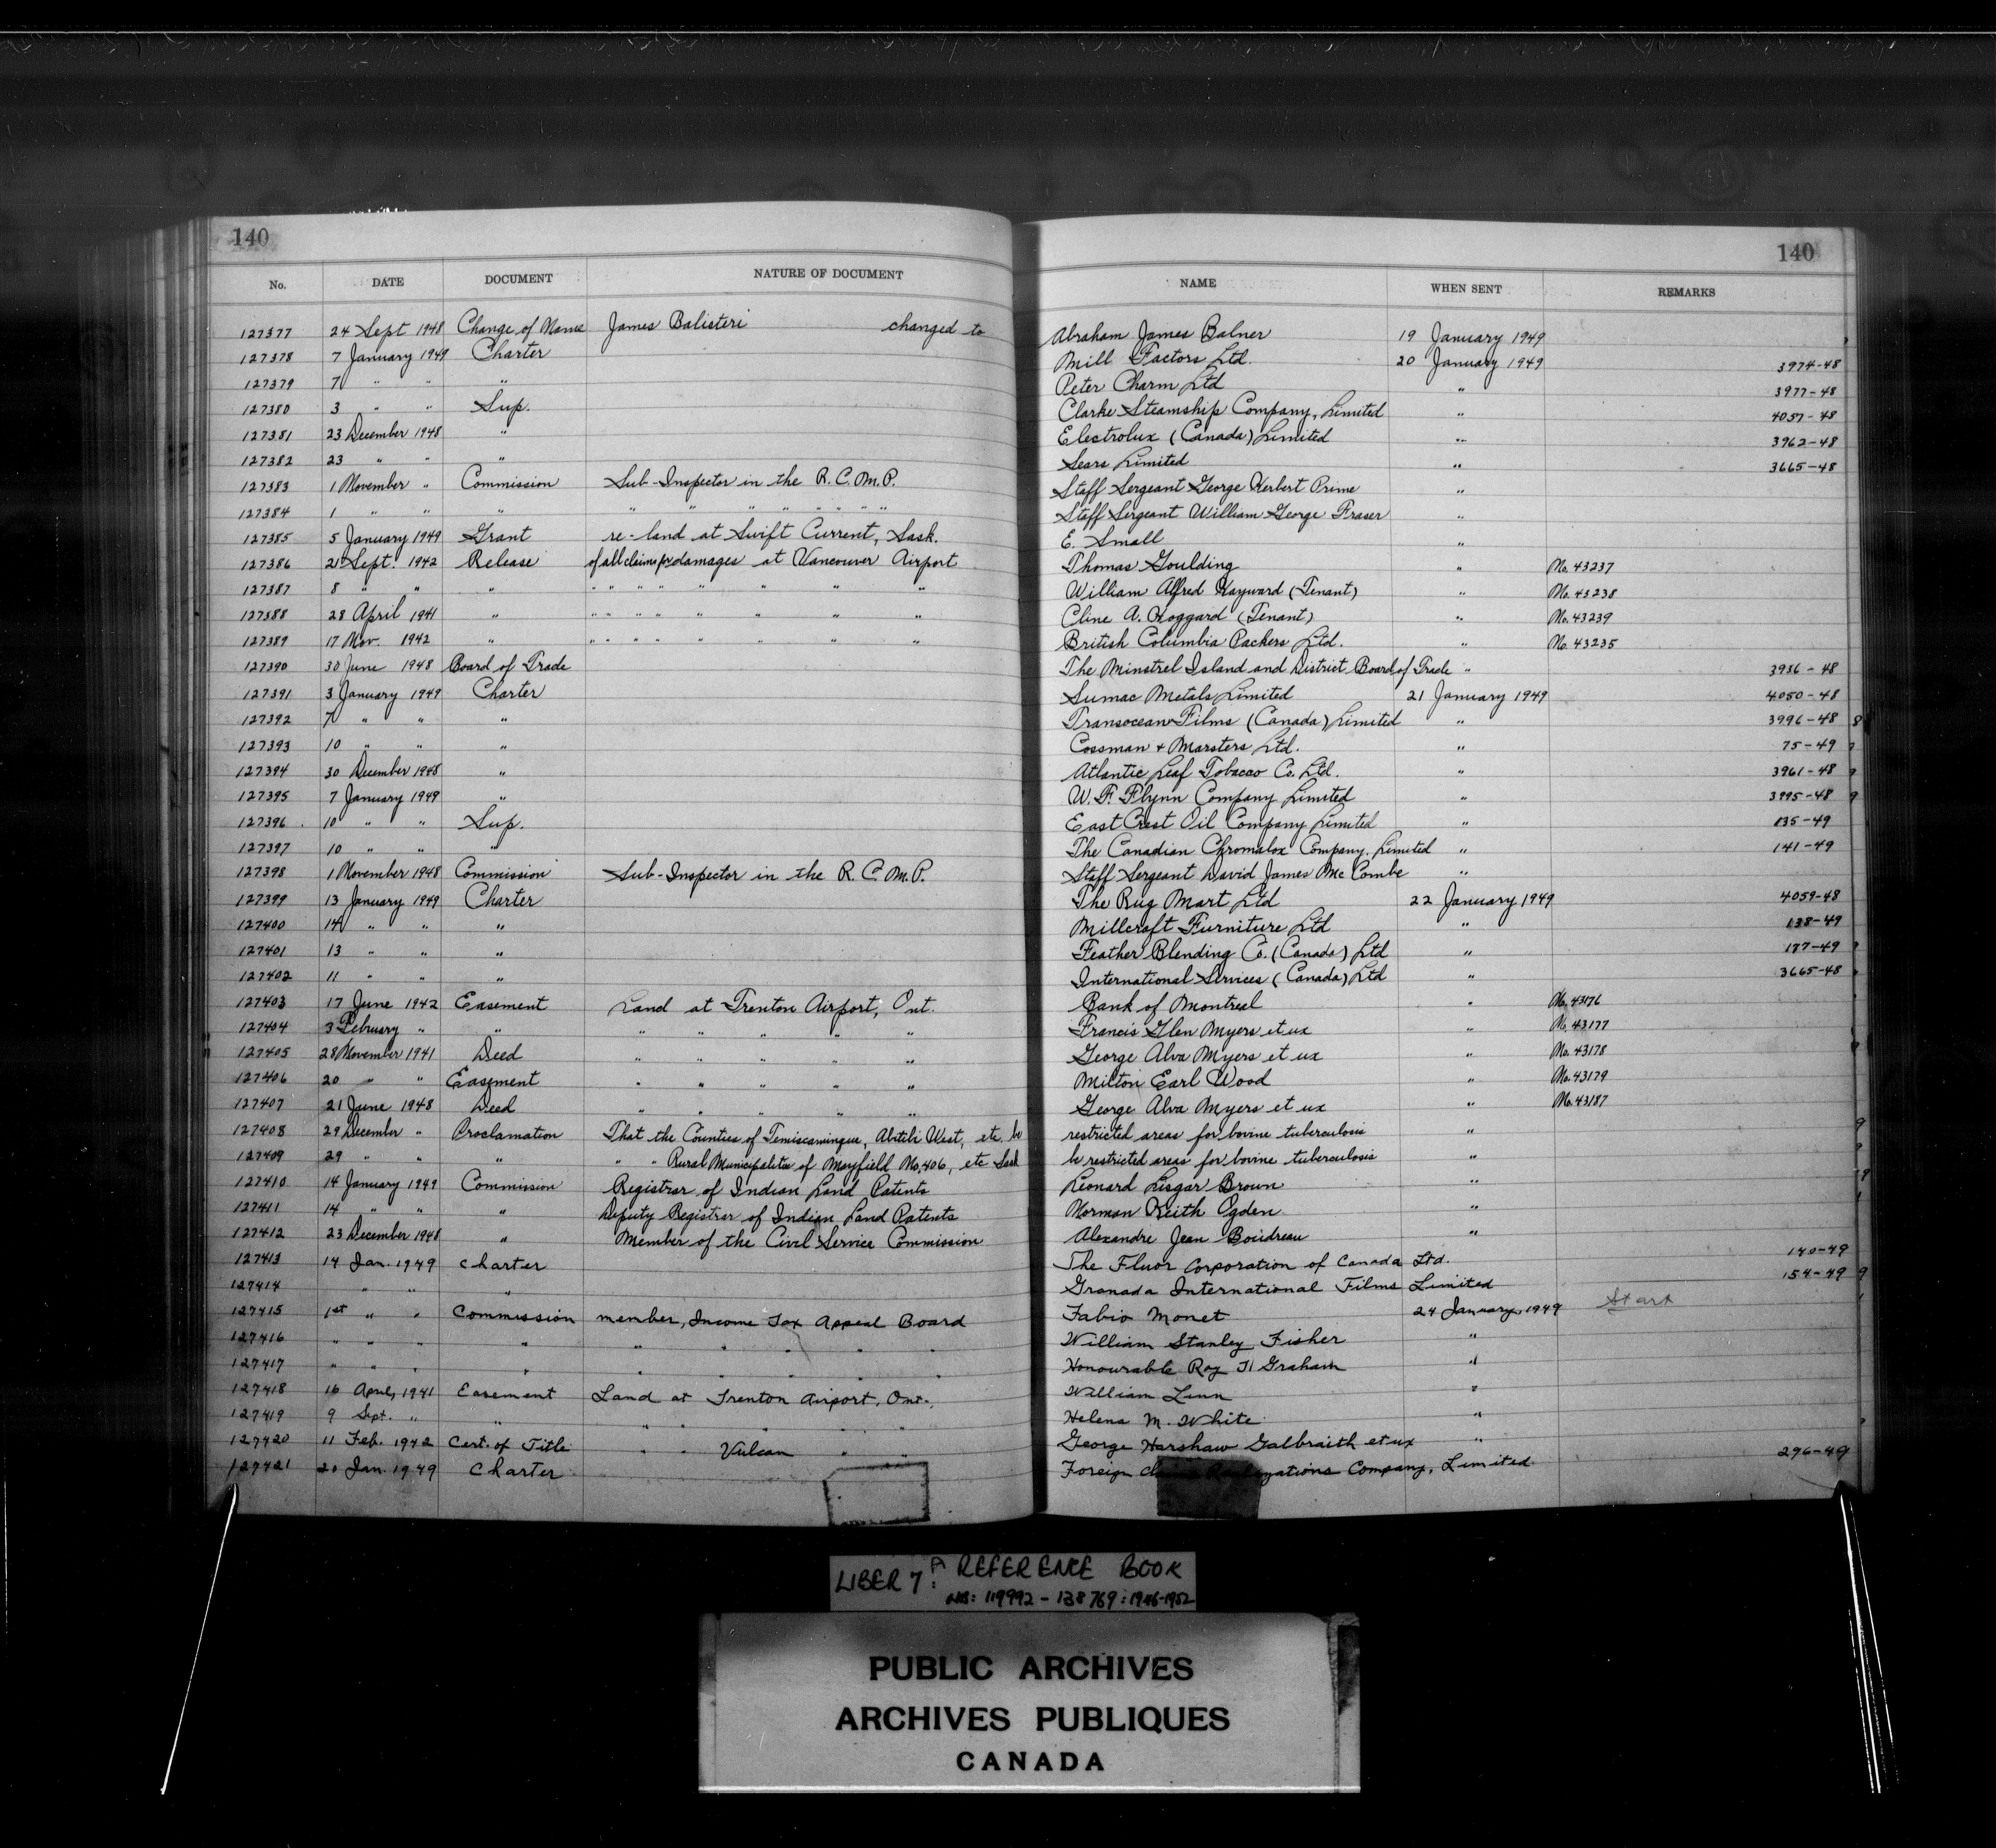 140 140
No. DATE DOCUMENT NATURE OF DOCUMENT NAME WHEN SENT REMARKS
127377 24 Sept 1948 Change of Name James Balisteri changed to Abraham James Balner 19 January 1949
127378 7 January 1949 Charter Mill Factors Ltd. 20 January 1949 3974-48
127379 7 " " " Peter Charm Ltd " 3977-48
127380 3 " " Sup. Clarke Steamship Company, Limited " 4057-48
127381 23 December 1948 " Electrolux (Canada) Limited " 3962-48
127382 23 " " " Sears Limited " 3665-48
127383 1 November " Commission Sub-Inspector in the R.C.M.P. Staff Sergeant George Herbert Prime "
127384 1 " " " " " " " " " " " Staff Sergeant William George Fraser "
127385 5 January 1949 Grant re-land at Swift Current, Sask. E. Small "
127386 21 Sept. 1942 Release of all claims for damages at Vancouver Airport Thomas Goulding " No. 43237
127387 8 " " " " " " " " " " " William Alfred Hayward (Tenant) " No. 43238
127388 28 April 1941 " " " " " " " " " Cline A. Hoggard (Tenant) " No. 43239
127389 17 Nov. 1942 " " " " " " " " " British Columbia Packers Ltd. " No. 43235
127390 30 June 1948 Board of Trade The Minstrel Island and District Board of Trade " 3936-48
127391 3 January 1949 Charter Sumac Metals Limited 21 January 1949 4050-48
127392 7 " " " Transocean Films (Canada) Limited " 3996-48
127393 10 " " " Cossman + Marsters Ltd. " 75-49
127394 30 December 1948 " Atlantic Leaf Tobacco Co. Ltd. " 3961-48
127395 7 January 1949 " W. F. Flynn Company Limited " 3995-48
127396 10 " " Sup. East Crest Oil Company Limited " 135-49
127397 10 " " " The Canadian Chromalox Company, Limited " 141-49
127398 1 November 1948 Commission Sub-Inspector in the R.C.M.P. Staff Sergeant David James McCombe "
127399 13 January 1949 Charter The Rug Mart Ltd 22 January 1949 4059-48
127400 14 " " " Millcraft Furniture Ltd " 138-49
127401 13 " " " Feather Blending Co. (Canada) Ltd " 177-49
127402 11 " " " International Services (Canada) Ltd " 3665-48
127403 17 June 1942 Easement Land at Trenton Airport, Ont. Bank of Montreal " No. 43176
127404 3 February " " " " " " " Francis Glen Myers et ux " No. 43177
127405 28 November 1941 Deed " " " " " George Alva Myers et ux " No. 43178
127406 20 " " Easement " " " " " Milton Earl Wood " No. 43179
127407 21 June 1948 Deed " " " " " George Alva Myers et ux " No. 43187
127408 29 December " Proclamation That the Counties of Temiscamingue, Abitibi West, etc. be restricted areas for bovine tuberculosis "
127409 29 " " " " " Rural Municipalities of Mayfield No. 406, etc Sask be restricted areas for bovine tuberculosis "
127410 14 January 1949 Commission Registrar of Indian Land Patents Leonard Lisgar Brown "
127411 14 " " " Deputy Registrar of Indian Land Patents Norman Keith Ogden "
127412 23 December 1948 " Member of the Civil Service Commission Alexandre Jean Boudreau "
127413 14 Jan. 1949 Charter The Fluor Corporation of Canada Ltd. 140-49
127414 " " " Granada International Films Limited 154-49
127415 1st " " Commission member, Income Tax Appeal Board Fabio Monet 24 January, 1949 Start
127416 " " " " " " " " " William Stanley Fisher "
127417 " " " " " " " " " Honourable Roy T. Graham "
127418 16 April, 1941 Easement Land at Trenton Airport, Ont., William Linn "
127419 9 Sept. " " " " " " " Helena M. White "
127420 11 Feb. 1942 Cert. of Title " " Vulcan " " George Harshaw Galbraith et ux "
127421 20 Jan. 1949 Charter Foreign Company, Limited 296-49
LIBER 7A: REFERENCE BOOK
NOS: 119992-138769: 1946-1952
PUBLIC ARCHIVES
ARCHIVES PUBLIQUES
CANADA